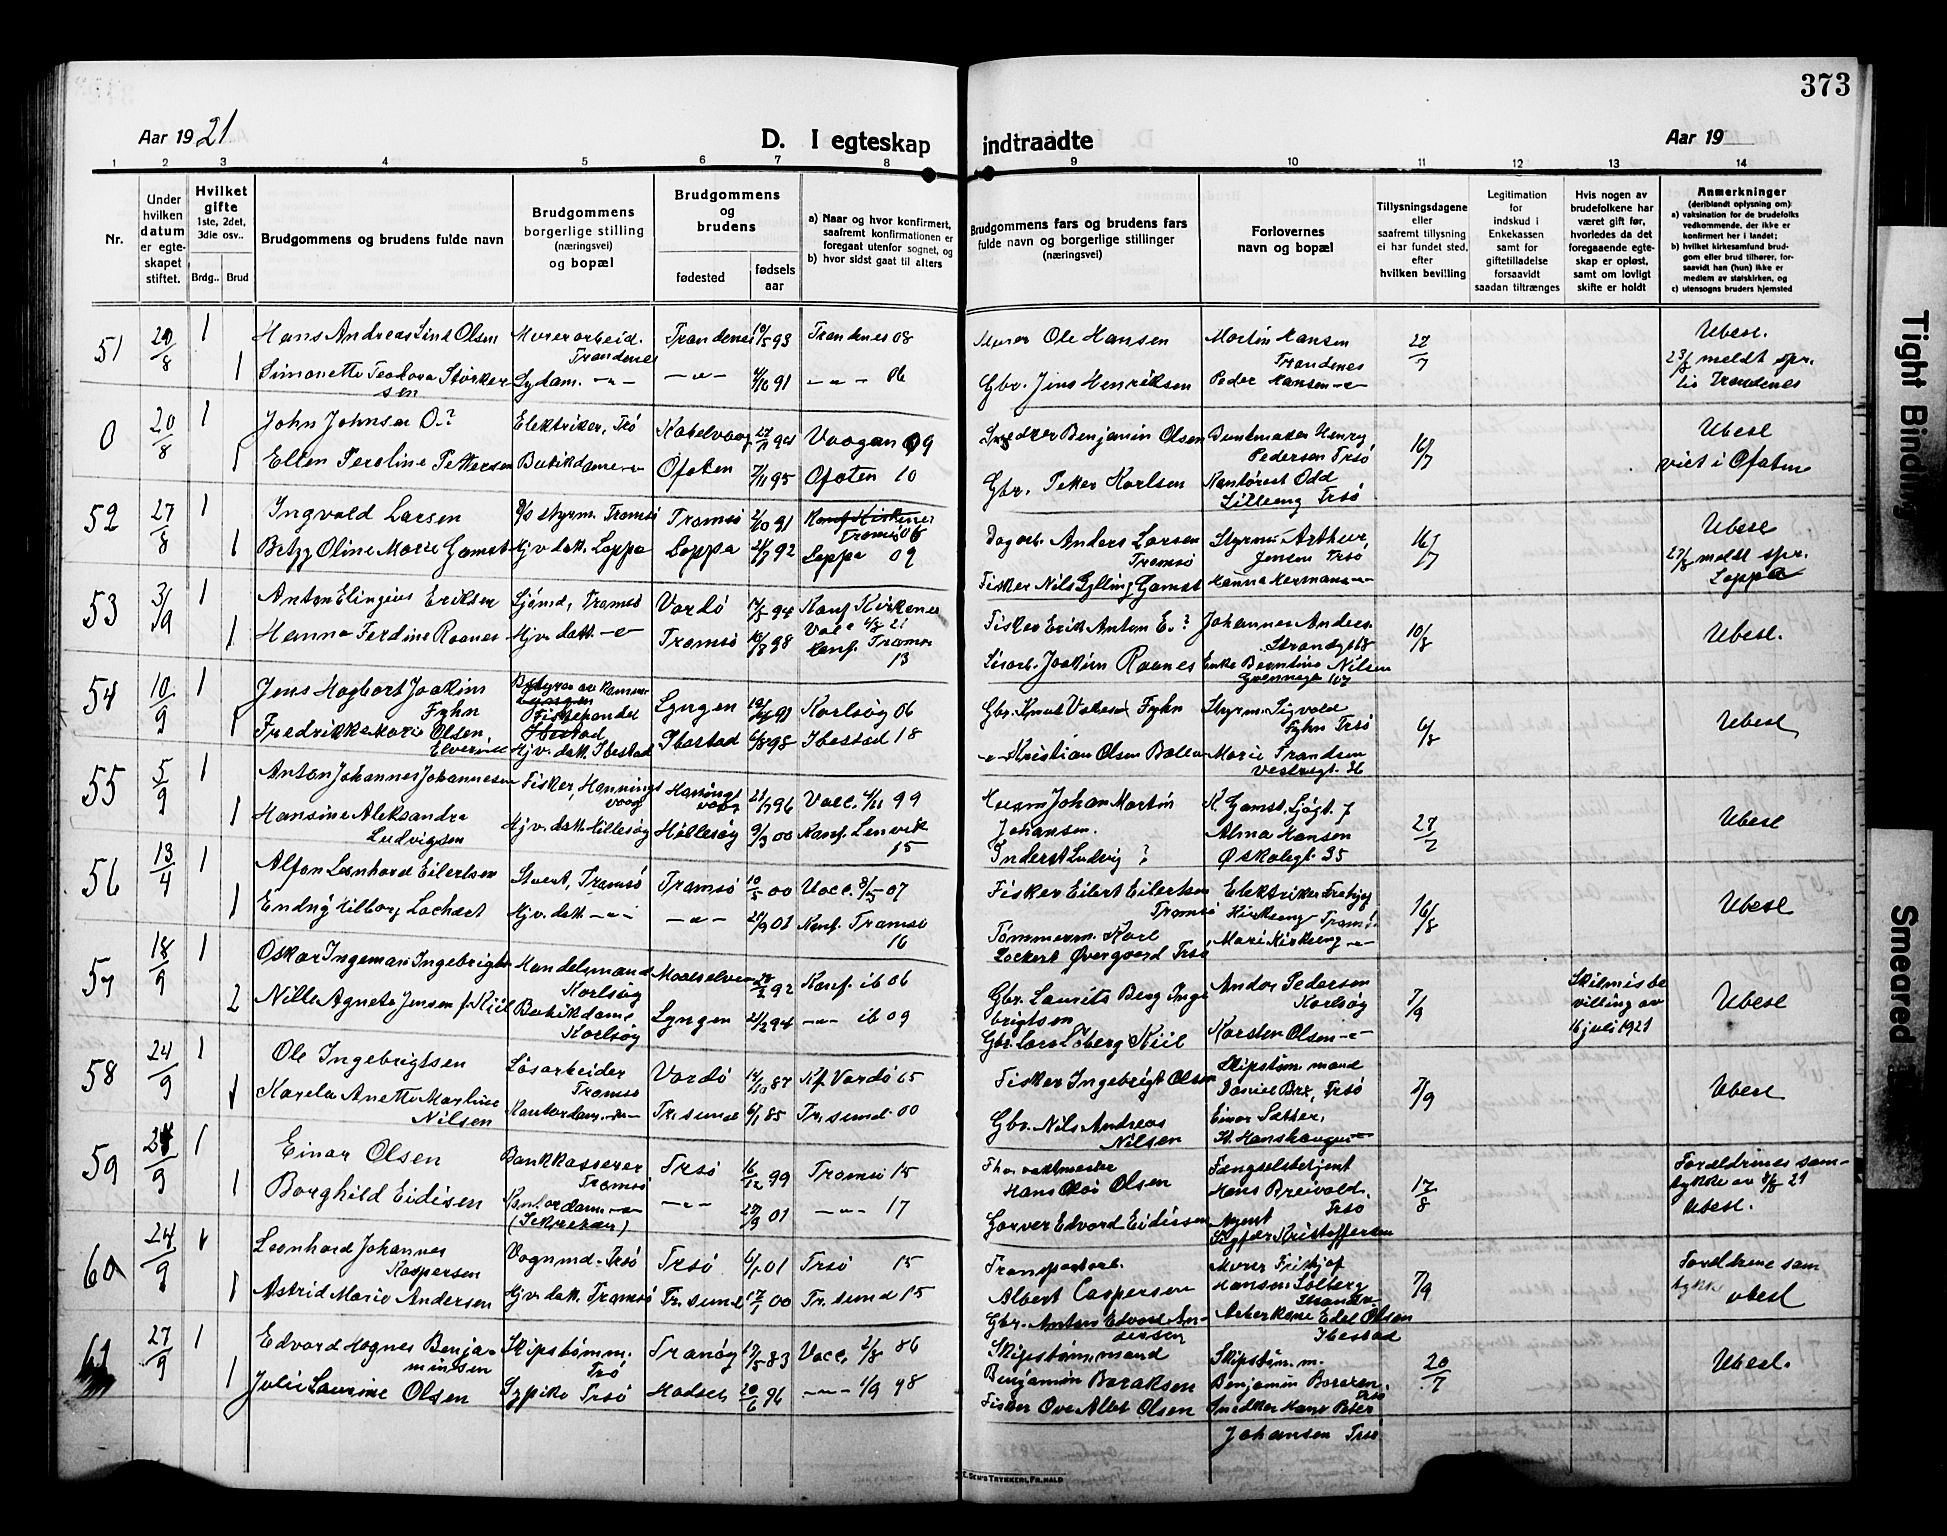 373
Aar 1921
D. I egteskap
indtraadte
Aar 19
1 2 3 4 5 6 7 8
9 10 11 12 13 14
Nr.
Under hvilken datum er egte-skapet stiftet.
Hvilket gifte 1ste, 2det, 3die osv..
Brdg.. Brud
Brudgommens og brudens fulde navn
Brudgommens borgerlige stilling (næringsvei) og bopæl
Brudgommens og brudens
fødested
fødsels aar
a) Naar og hvor konfirmert, saafremt konfirmationen er foregaat utenfor sognet, og
b) hvor sidst gaat til alters
Brudgommens fars og brudens fars fulde navn og borgerlige stillinger (næringsvei)
Forlovernes navn og bopæl
Tillysningsdagene eller saafremt tillysning ei har fundet sted, efter hvilken bevilling
Legitimation for indskud i Enkekassen samt for giftetilladelse forsaavidt saadan tiltrænges
Hvis nogen av brudefolkene har været gift før, hvorledes da det foregaaende egte-skap er opløst, samt om lovligt skifte er holdt
Anmerkninger (deriblandt oplysning om)
a) vaksination for de brudefolks vedkommende, der ikke er konfirmert her i landet;
b) hvilket kirkesamfund brud-gom eller brud tilhører, for-saavidt han (hun) ikke er medlem av statskirken, og
c) utensogns bruders hjemsted
51 20/8 1 Hans Andreas Lind Olsen Murerarbeid. Trondenes Trondenes 93 Trondnes 08 Murer Ole Hansen Martin Hansen Trondenes 27/7 Ubesl.
1 Simonette Teodora Størker-sen Sydam. -"- -"- 91 -"- 06 Gbr. Jens Henriksen Peder Hansen -"- meldt spr. til Trondenes
0 20/8 1 John Johnsen O.? Elektriker, Trsö Kabelvaag 94 Vaagan 09 Snedker Benjamin Olsen Buntmaker Henry Pedersen Trsö 16/7 Ubesl
1 Ellen Peroline Pettersen Butikdame -"- Ofoten 7/11 95 Ofoten 10 Gbr. Peter Karlsen Kontorist Odd Lilleeng Trsö viet i Ofoten
52 27/8 1 Ingvald Larsen styrm. Tromsö Tromsö 2/10 91 Tromsö 06 Dagarb. Anders Larsen Tromsö Styrm. Arthur Jensen Trsö 16/7 Ubesl
1 Betzy Oline Marie Gamst Hjv. datt. Loppa Loppa 92 Loppa 09 Fisker Nils Gylling Gamst Hanna Hermans -"- 27/8 meldt spr. Loppa
53 3/9 1 Anton Elingius Eriksen Sjömd, Tromsö Vardö 94 Konf Kirkenes Fisker Erik Anton E.? Johannes Anders. Strandgt 8 10/8 Ubesl.
1 Hanna Ferdine Raanes Hjv. datt. -"- Tromsö 98 Konf. Tromsö 13 Lösarb. Joakim Raanes Enke Berntine Nilsen Grønnegt 107
54 10/9 1 Jens Hagbart Joakim Fyhn Lyngen 91 Karlsöy 06 Gbr. Knut Fyhn Styrm. Sigvald Fyhn Trsö 6/8 Ubesl
1 Fredrikke Marie Olsen, Hjv. datt. Ibestad Ibestad 6/8 98 Ibestad 18 -"- Kristian Olsen Marie Trondsen Vestregt. 36
55 5/9 1 Anton Johannes Johannesen Fisker, Honningsvaag Honningsvaag 96 Vacc. 4/11 99 Johan Martin Johansen. K. Gamst. Sjøgt. 7 27/7 Ubesl
1 Hansine Aleksandra Ludvigsen Hjv. datt. Hillesöy Hillesöy 9/3 00 Konf. Lenvik 15 Inderst Ludvig ? Alma Hansen Øskolegt. 35
56 13/4 1 Alfon Leonhard Eilertsen Stuert, Tromsö Tromsö 10/5 00 Vacc. 8/5 07 Fisker Eilert Eilertsen Tromsö Elektriker Kirkeng Tromsö 16/8 Ubesl
1 Endny Hilborg Lockert Hjv. datt -"- -"- 01 Konf. Tromsö 16 Tømmerm. Karl Lockert Øvergaard Trsö Mari Kirkeng -"-
57 18/9 1 Oskar Ingeman Ingebrigts. Handelsmand Karlsöy Maalselven 92 Konf. ib 06 Gbr. Laurits Berg Inge-brigtsen Andor Pedersen Karlsöy 7/9 Skilsmisbe-villing av 16 juli 1921 Ubesl
2 Nille Agnete Jensen f. Kiil Butikdame Karlsöy Lyngen 94 -"- ib 09 Gbr. Lars Löberg Kiil Karsten Olsen -"-
58 24/9 1 Ole Ingebrigtsen Lösarbeider Tromsö Vardö 14/10 87 Kf Vardö Fisker Ingebrigt Olsen Skipstöm. mand Daniel Trsö 7/9 Ubesl
1 Karela Anette Marlene Nilsen Kontordam. -"- Tr. sund 6/1 85 Tr. sund. 00 Gbr. Nils Andreas Nilsen Einar Sæther, St. Hanshaugen
59 24/9 1 Einar Olsen Bankkasserer Tromsö Trsö 16/12 99 Tromsö 15 Hans Olai Olsen Fængselsbetjent Hans Breivold, Trsö 17/8 Foreldrenes sam-tykke av 8/8 21
1 Borghild Eidisen Kontordam. -"- (Sekretær) -"- 27/9 01 -"- 17 Garver Edvard Eidissen Agent Sigfær Kristoffersen Ubesl.
60 24/9 1 Leonhard Johannes Kaspersen Vognmd. Trsö Trsö 6/1 01 Trsö 15 Transportarb. Albert Caspersen Murer Fritjof Hansen Solberg 7/9 Foreldrene sam-tykke
1 Astrid Marie Andersen Hjv. datt. Tromsö Tr. sund 17/1 00 Tr. sund 15 Gbr. Anton Edvard An-dersen Edel Olsen Ibestad ubesl
61 27/9 1 Edvard Hagnes Benja-minsen Skipstømm. Trsö Tranöy 17/5 83 Vacc. 2/8 86 Skipstømmermand Benjamin Baraksen Skipstöm. m. Benjamin Trsö 20/7 Ubesl.
1 Julie Laurine Olsen Sypike Trsö Hadsel 20/6 96 -"- 1/9 98 Fisker Ove Albt Olsen Snedker Hans Peter Johansen Trsö
Tight Binding
Smeared